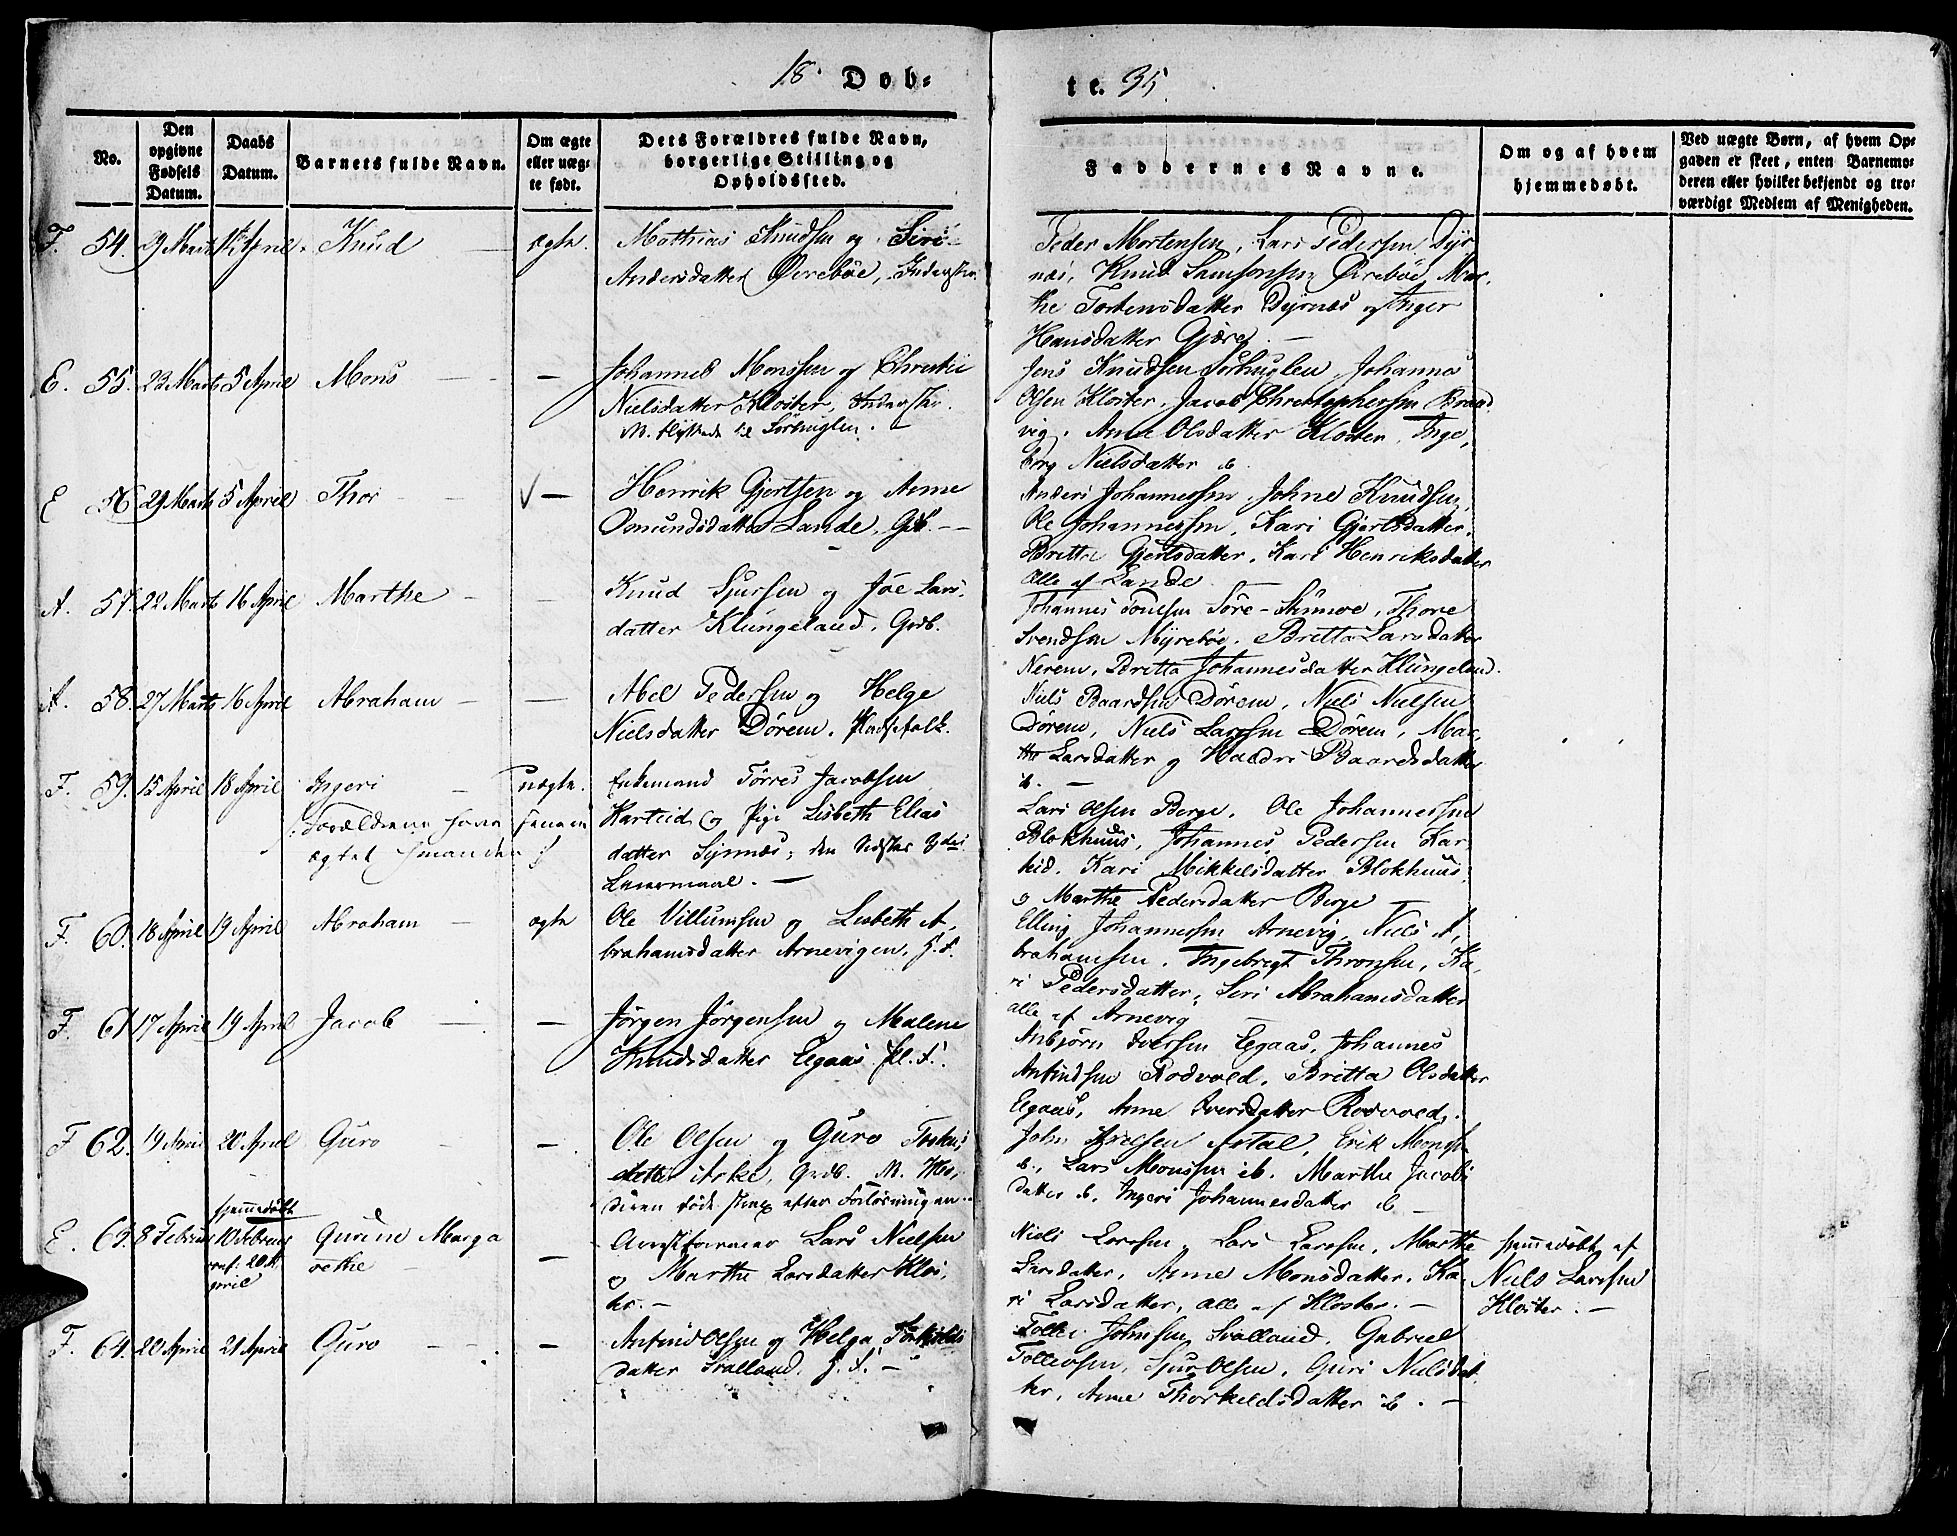 18 Døb=
te. 35
4
No.
Den
opgivne
Fødsels
Datum.
Daabs
Datum.
Barnets fulde Navn.
Om ægte
eller uæg-
te født.
Dets Forældres fulde Navn,
borgerlige Stilling og
Opholdssted.
Faddernes Navne.
Om og af hvem
hjemmedøbt.
Ved uægte Børn, af hvem Op-
gaven er skeet, enten Barnemo-
deren eller hvilket bekjendt og tro-
værdigt Medlem af Menigheden.
F. 54. 29 Marts April Knud – ægte.
Mathias Knudsen og Siri
Andersdatter Øvrebøe, Inderster.
Peder Mortensen, Lars Pedersen Dyr
næs, Knud Samsonsen Øvrebøe, Mar,
the Torbensdatter Dyrnæs og Inger
Hansdatter Gjære. –
E. 55. 23 Marts 5 April Mons – –
Johannes Monssen og Christi
Nielsdatter Kloster, Inderster.
M. flyttede til Sørhuglen. –
Jens Knudsen Sørhuglen, Johannes
Olsen Kloster, Jacob Christophersen Brand
vig, Anne Olsdatter Kloster, Inge,
borg Nielsdatter ib.
E 56 29 Marts 5 April Thor – – √ –
Henrik Gjertsen og Anne
Osmundsdatter Lande, Gdb. –
Anders Johannessen, Johne Knudsen,
Ole Johannessen, Kari Gjertsdatter,
Britta Gjertsdatter, Kari Henriksdatter
Alle af Lande
A. 57. 22 Marts 16 April Marthe – –
Knud Sjursen og Joe Lars,
datter Klungeland, Grdb.
Johannes Tonesen Søre-Skimroe, Thore
Svendsen Myrebøe, Britta Larsdatter
Nerem, Britta Johannesdatter Klungeland.
A. 58. 27 Marts 16 April Abraham – –
Abel Pedersen og Helge
Nielsdatter Dørem, Huusfolk.
Niels Baardsen Dørem, Niels Nielsen
Dørem, Niels Larssen Dørem, Mar,
tha Larsdatter og Baardsdatter
ib. –
F. 59. 15 April 18 April Ingeri – uægte.
Forældrene have senere
ægtet hinanden
Enkemand Tørres Jacobsen
Karteid og Pige Lisbeth Elias
datter Synnæs, den Sidstes 3des
Leiermaal. –
Lars Olsen Berge, Ole Johannessen
Blokhuus, Johannes Pedersen Kar
teid, Kari Mikkelsdatter Blokhuus,
og Marthe Pedersdatter Berge –
F. 60. 18 April 19 April Abraham – ægte
Ole Villumsen og Lisbeth A,
brahamsdatter Arnevigen, H.F.
Elling Johannessen Arnevig, Niels A,
brahamsen, Ingebrigt Thronsen, Ka,
ri Pedersdatter, Siri Abrahamsdatter
alle af Arnevig
F. 61. 17 April 19 April Jacob – –
Jørgen Jørgensen og Malene
Knudsdatter Egaas Pl. F.
Anbjørn Iversen Egaas, Johannes
Anfindsen Rodvold, Britta Olsdatter
Egaas, Anne Iversdatter Rodvold,
F 62. 19 April 20 April Guro – –
Ole Olsen og Guro Torkels
datter Aske, Grdb. M.
døde strax efter Forløsningen.
John Stal, Erik Monss.
ib., Lars Monssen ib. Marthe Jacobs
datter ib, Ingeri Johannesdatter ib –
E. 63. 8 Februar hjemmedøbt
10 Februar
conf: 20 A
pril
Gurine Marga
rethe –
–
Lars Nielsen
og Marthe Larsdatter Klos,
ter. –
Niels Larssen, Lars Larssen, Marthe
Larsdatter, Anne Monsdatter, Ka,
ri Larsdatter, alle af Kloster. –
hjemmedøbt af
Niels Larssen
Kloster. –
F. 64. 20 April 21 April Guro – –
Anfind Olsen og Helga Torkilds
datter Svalland. H.F. –
Tollei Johnsen Svalland, Gabriel
Tolleivsen, Sjur Olsen, Guri Nielsdat
ter, Anne Thorkeldsdatter ib. –